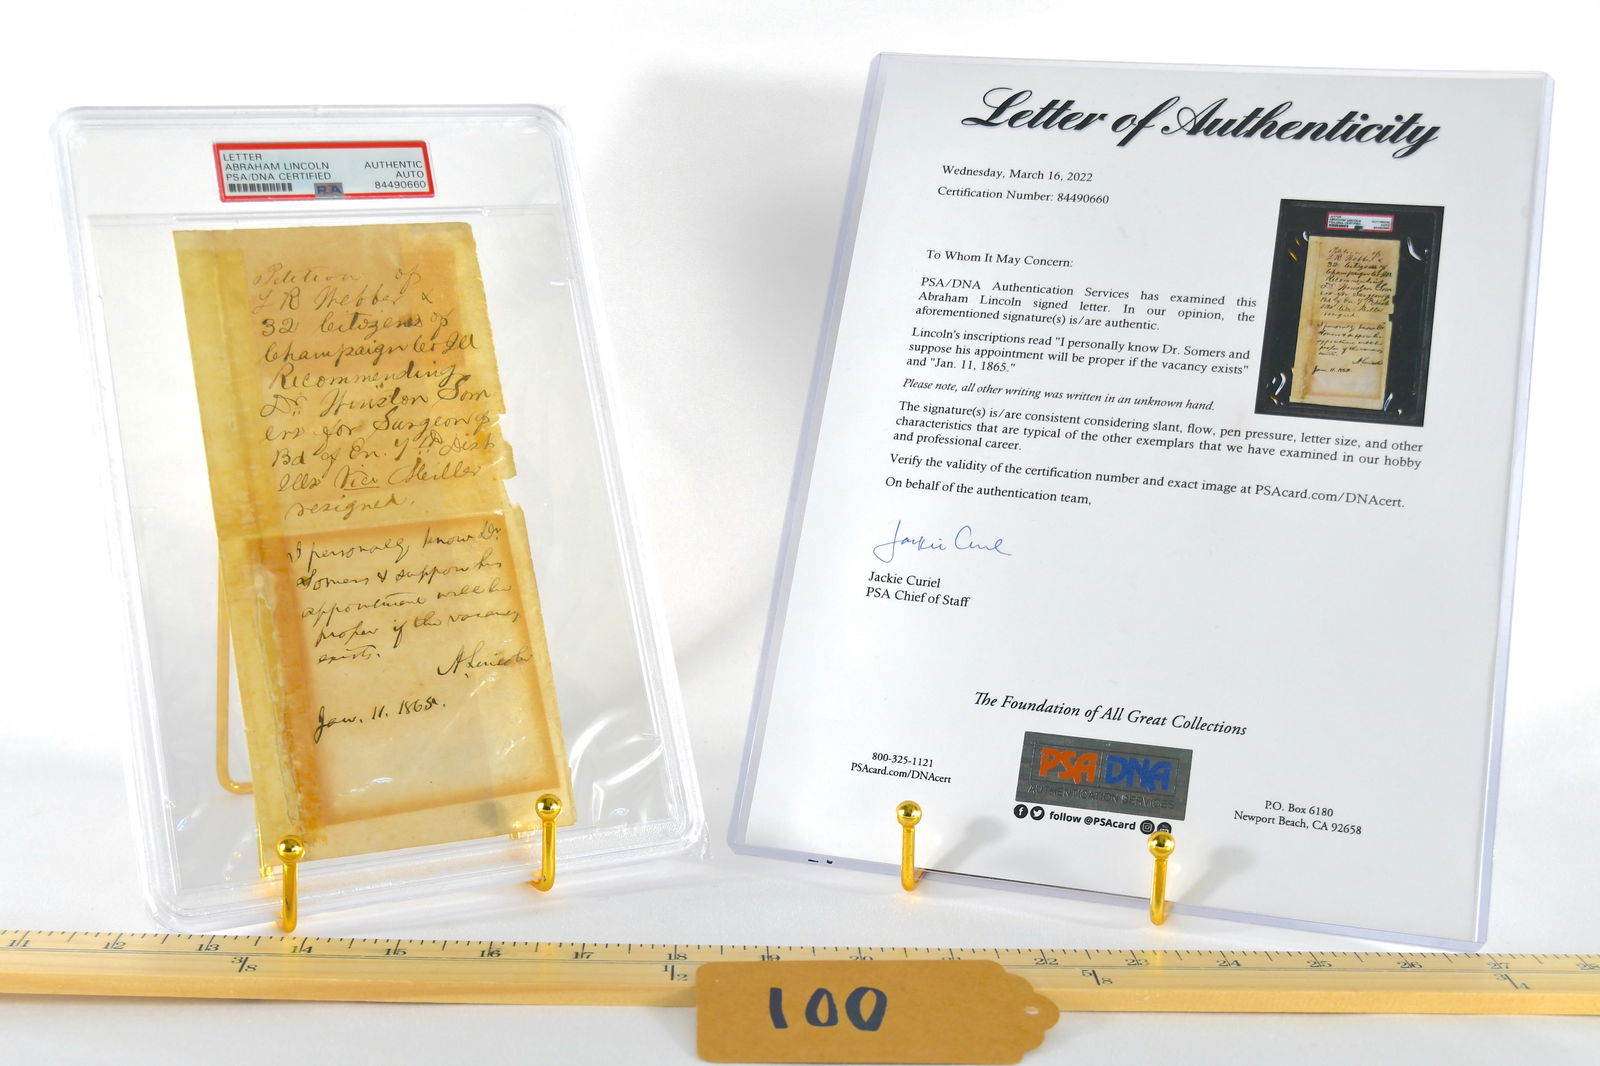 LETTER
ABRAHAM LINCOLN AUTHENTIC
PSA/DNA CERTIFIED AUTO
PSA 84490660
Petition of
L R Webber &
32 Citizens of
Champaign Co Ill
Recommending
Dr. Winston Som
ers for Surgeon of
Bd of En. 7th Dist
Ills Vice Miller
resigned.
I personally know Dr.
Somers & suppose his
appointment will be
proper if the vacancy
exists.
A. Lincoln
Jan. 11. 1865.
Letter of Authenticity
Wednesday, March 16, 2022
Certification Number: 84490660
To Whom It May Concern:
PSA/DNA Authentication Services has examined this
Abraham Lincoln signed letter. In our opinion, the
aforementioned signature(s) is/are authentic.
Lincoln's inscriptions read "I personally know Dr. Somers and
suppose his appointment will be proper if the vacancy exists"
and "Jan. 11, 1865."
Please note, all other writing was written in an unknown hand.
The signature(s) is/are consistent considering slant, flow, pen pressure, letter size, and other
characteristics that are typical of the other exemplars that we have examined in our hobby
and professional career.
Verify the validity of the certification number and exact image at PSAcard.com/DNAcert.
On behalf of the authentication team,
Jackie Curiel
Jackie Curiel
PSA Chief of Staff
The Foundation of All Great Collections
800-325-1121
PSAcard.com/DNAcert
PSA DNA
AUTHENTICATION SERVICES
follow @PSAcard
P.O. Box 6180
Newport Beach, CA 92658
11 12 13 14 15 16 17 18 19 20 21 22 23 24 25 26 27 28
3/8 1/2 5/8 3/4
100